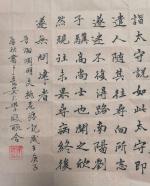 詣太守説如此太守即
遣人隨其往尋向所
誌遂迷不復得路南陽劉
子驥高尚士也聞之欣
然規往未果尋病終後
遂無問津者
晉陶淵明文桃花源記歲
庚子